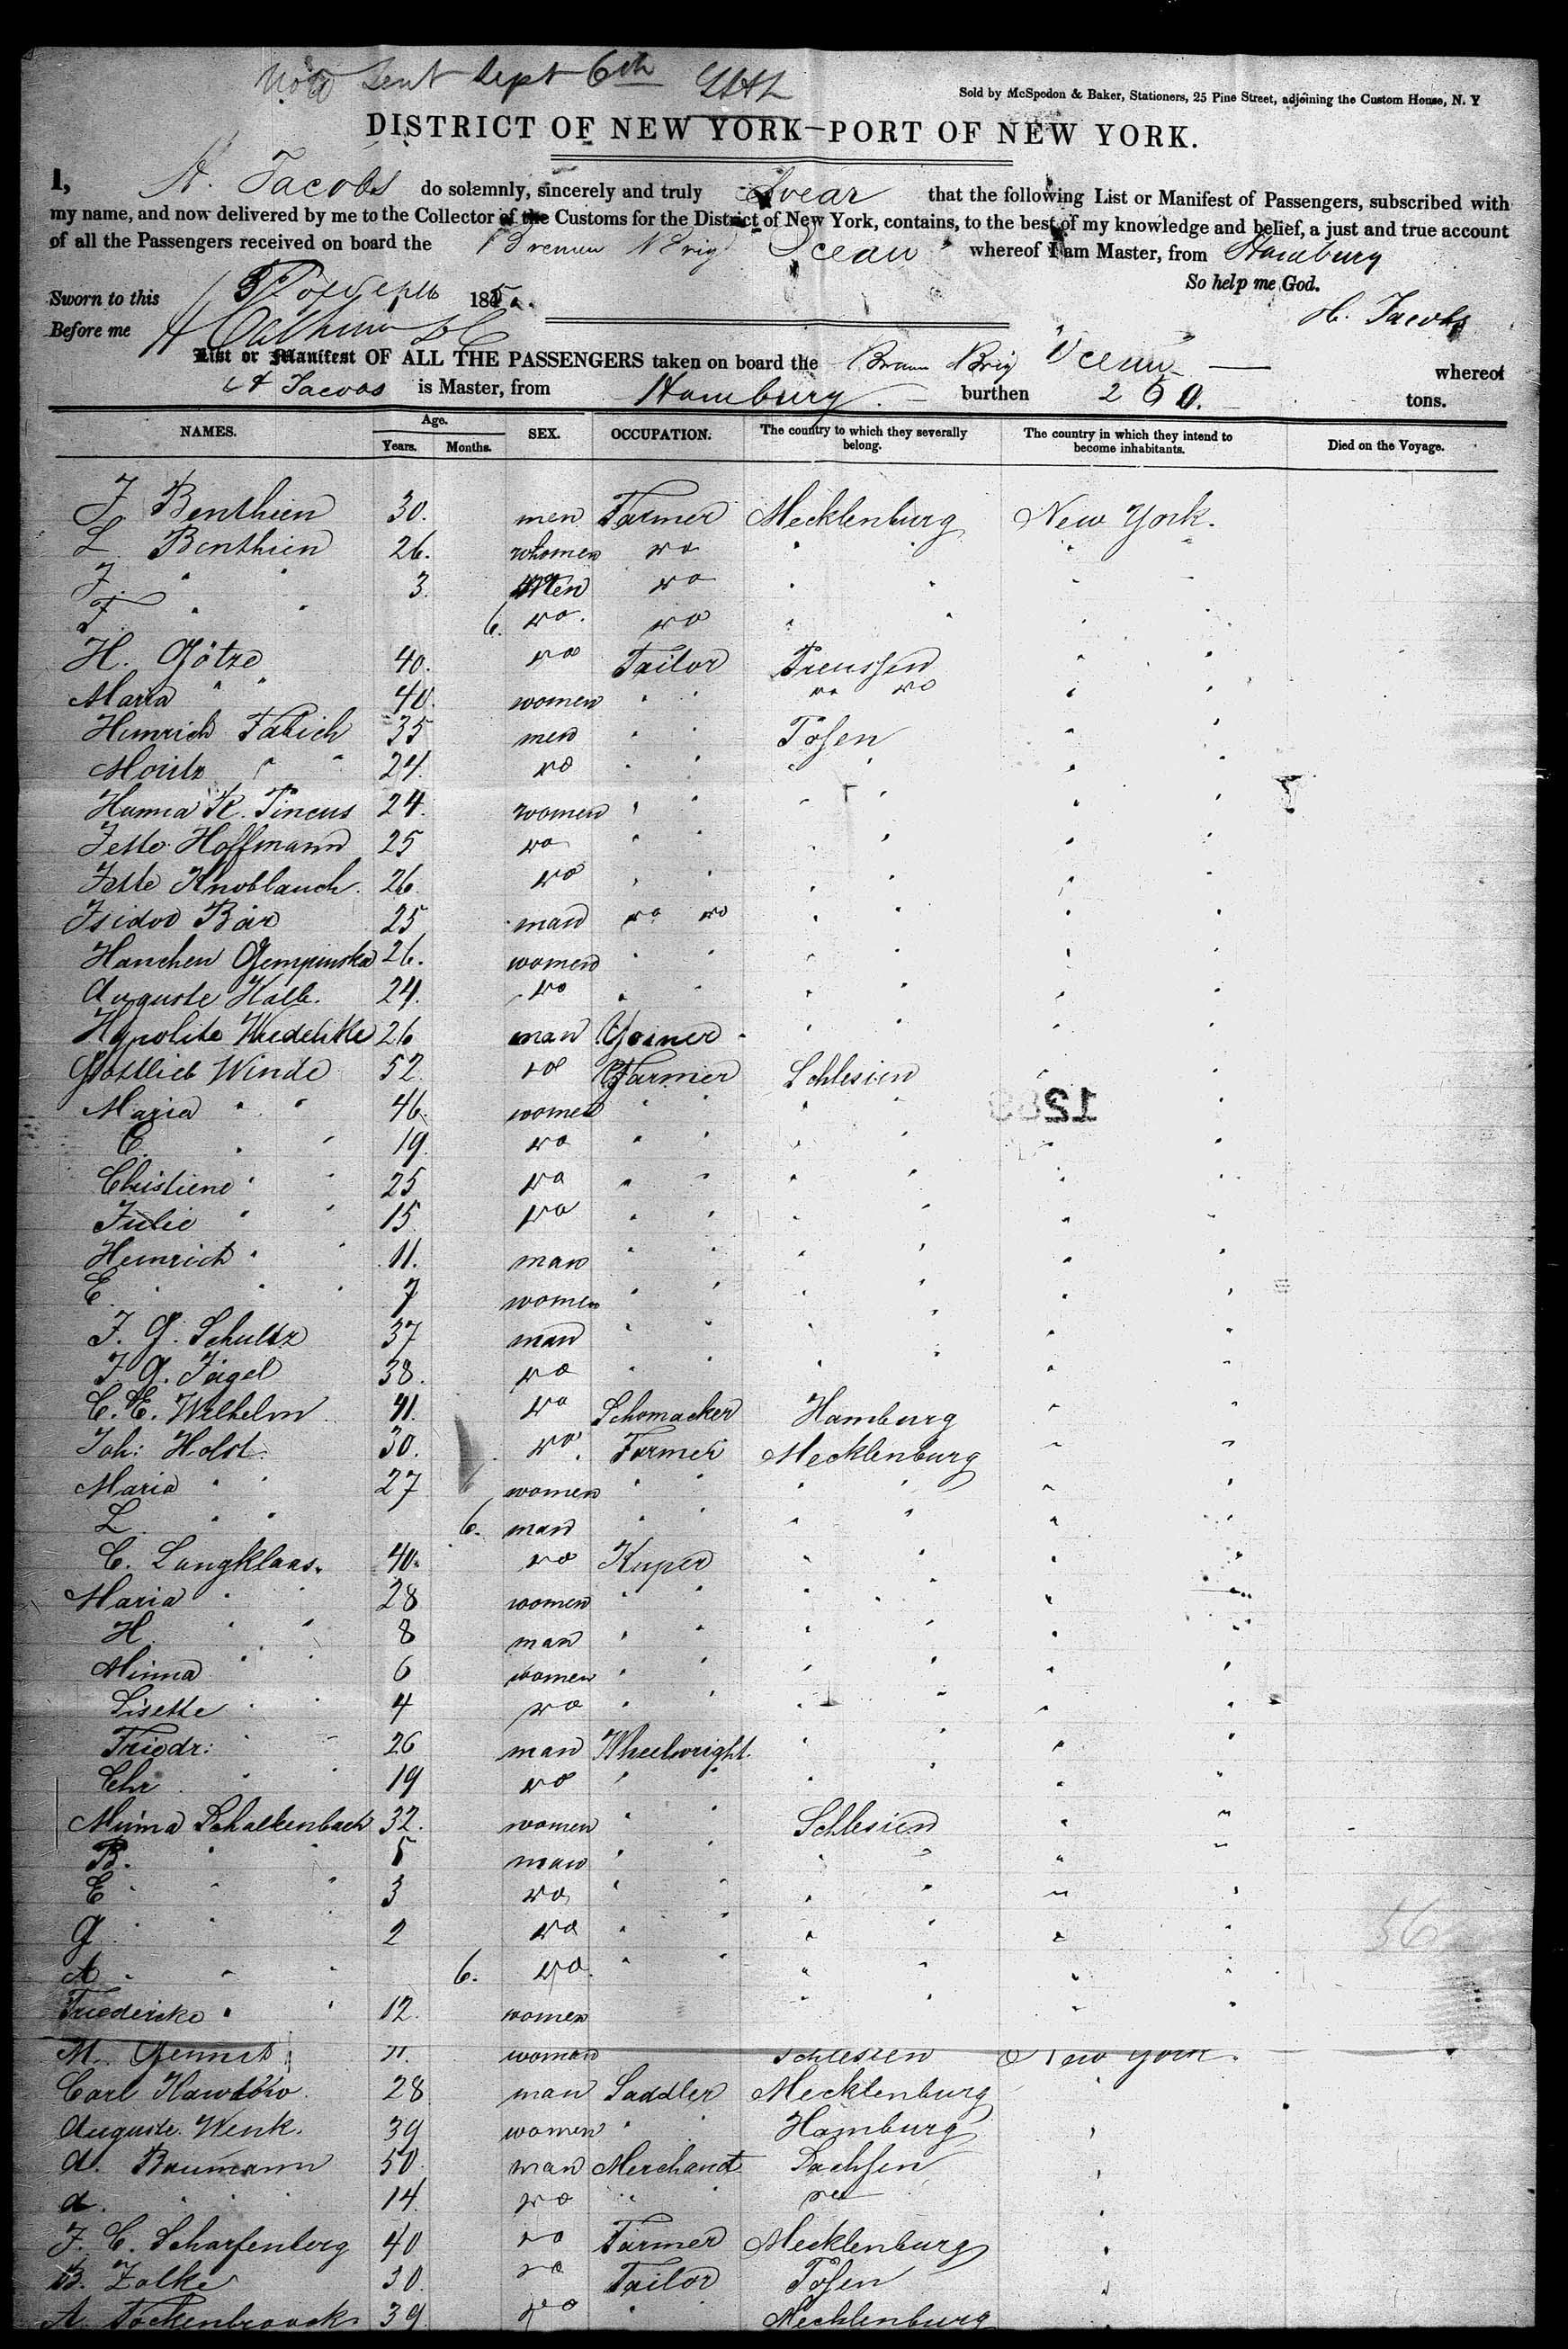 Sent Sept 6th
Sold by McSpedon & Baker, Stationers, 25 Pine Street, adjoining the Custom House, N. Y
DISTRICT OF NEW YORK—PORT OF NEW YORK.
I, H. Jacobs do solemnly, sincerely and truly Swear that the following List or Manifest of Passengers, subscribed with
my name, and now delivered by me to the Collector of the Customs for the District of New York, contains, to the best of my knowledge and belief, a just and true account
of all the Passengers received on board the Bremen Brig Ocean whereof I am Master, from Hamburg
So help me God.
Sworn to this 185
H. Jacobs
Before me
List or Manifest OF ALL THE PASSENGERS taken on board the Brem Brig Ocean whereof
H Jacobs is Master, from Hamburg. burthen 260. tons.
NAMES. Age. Years. Months. SEX. OCCUPATION. The country to which they severally belong. The country in which they intend to become inhabitants. Died on the Voyage.
J Benthien 30. men Farmer Mecklenburg New York.
L. Benthien 26. whomen do " "
J. " " 3. Men do " "
F. " " 6. do. do " "
H. Götze 40. do Tailor Preussen " "
Maria " " 40. women " " do do " "
Heinrich Fabich 35 men " " Posen " "
Moritz " " 24. do " " " " " "
Hanna R. Pincus 24. women " " " " " "
Jette Hoffmann 25 do " " " " " "
Jette Knoblauch. 26. do " " " " " "
Isidor Bär 25 man do do " " " "
Hanchen Gempinska 26. women " " " " " "
Auguste Kalb. 24. do " " " " " "
Hypolite 26 man Yoiner " " " "
Gottlieb Winde 52. do Farmer Schlesien " "
Maria " " 46. women " " " " "
1283
C. " " 19. do " " " " " "
Christiene " " 25 do " " " " " "
Julie " " 15. do " " " " " "
Heinrich " " 11. man " " " " " "
E. " " 7 women " " " " " "
J. G. Schultz 37 man " " " " " "
J. G. Jägel 38. do " " " " " "
C. E. Wilhelm 41. do Schomacker Hamburg " "
Joh: Holst. 30. do. Farmer Mecklenburg " "
Maria " " 27 women " " " " " "
L. " " 6. man " " " " " "
C. Langklaas. 40. do Kuper " " " "
Maria " 28 women " " " " " "
H " " 8 man " " " " " "
Minna " " 6 women " " " " " "
Lisette " " 4 do " " " " " "
Friedr: " " 26 man Wheelwright. " " " "
Chr " " 19 do " " " " " "
Minna Schallenbach 32. women " " Schlesien " "
B. " " 5 man " " " " " "
E " " 3 do " " " " " "
G. " " 2 do " " " " " "
56
A " " 6. do. " " " " " "
Friedericke " " 12. women " " " "
M. 11. woman Schlesien New York.
Carl 28 man Saddler Mecklenburg "
Auguste Wenk. 39 women " " Hamburg "
A. Baumann 50. man Merchant Sachsen "
A. " " 14. do " " do "
J. C. Scharfenberg 40 do Farmer Mecklenburg "
B. Zalke 30. do Tailor Posen "
A 39. do " Mecklenburg